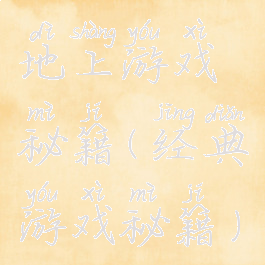 dì shàng yóu xì
地上游戏
mì jí jīng diǎn
秘籍(经典
yóu xì mì jí
游戏秘籍)